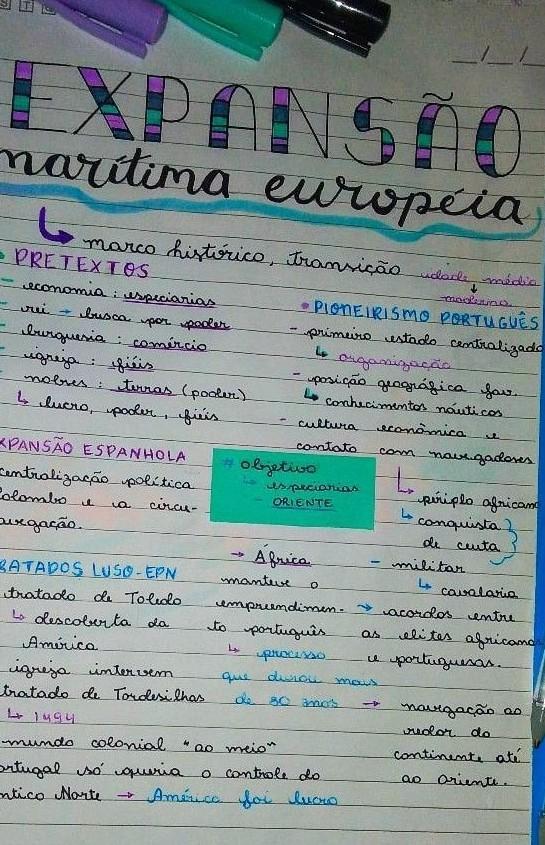 EXPANSÃO
marítima européia
marco histórico, transição idade média
moderna
PRETEXTOS
- economia : especiarias
- rei → busca por poder
- burguesia : comércio
- igreja : fiéis
- nobres : terras (poder)
lucro, poder, fiéis
• PIONEIRISMO PORTUGUÊS
- primeiro estado centralizado
organização
- posição geográfica fav.
conhecimentos náuticos
- cultura econômica e
contato com navegadores
périplo african
conquista
de ceuta
- militar
cavalaria
→ acordos entre
as elites africanas
e portuguesas.
→ navegação ao
redor do
continente até
ao oriente.
XPANSÃO ESPANHOLA
centralização política
Colombo e a circu-
avegação.
# objetivo
especiarias
- ORIENTE
RATADOS LUSO-EPN
tratado de Toledo
descoberta da
América
igreja intervem
tratado de Tordesilhas
1494
mundo colonial "ao meio"
ortugal só queria o controle do
ntico Norte → América foi lucro
→ África
manteve o
empreendimen-
to português
processo
que durou mais
de 80 anos